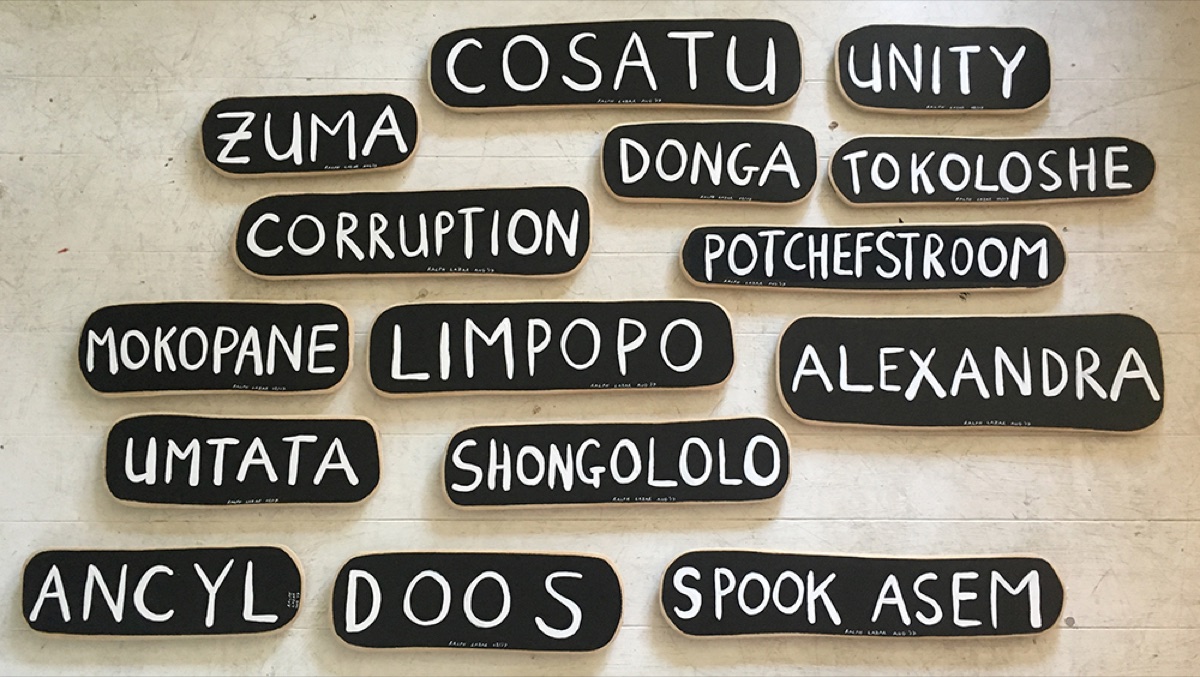 COSATU
UNITY
ZUMA
DONGA
TOKOLOSHE
CORRUPTION
POTCHEFSTROOM
MOKOPANE
LIMPOPO
ALEXANDRA
UMTATA
SHONGOLOLO
ANCYL
DOOS
SPOOK ASEM